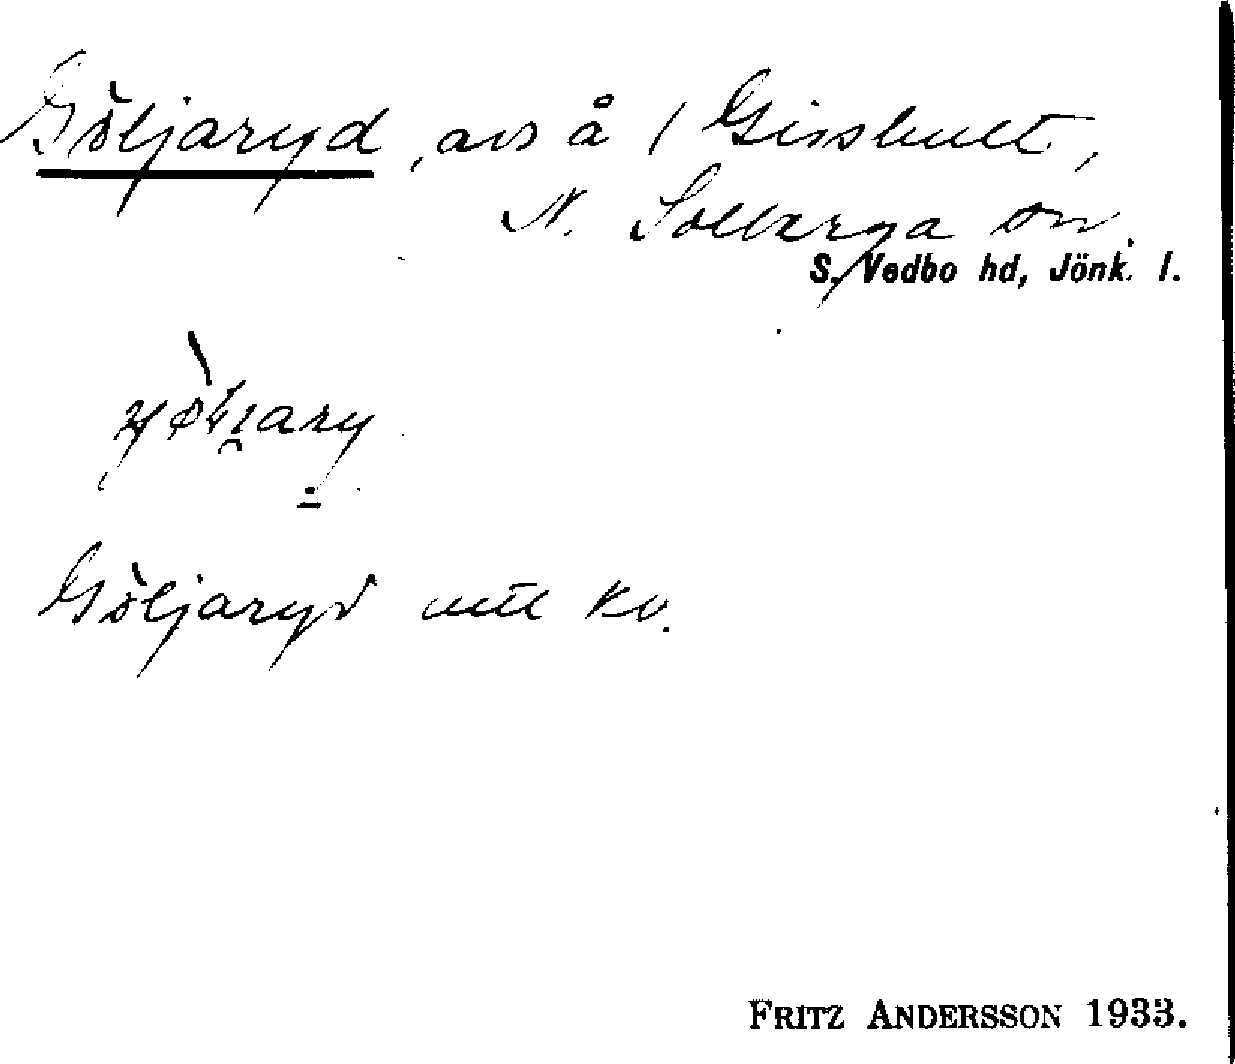 Göljaryd, avs å 1 Gisshult,
N. Solberga sn.
S. Vedbo hd, Jönk. l.
Göljaryd mtl Kv.
FRITZ ANDERSSON 1933.